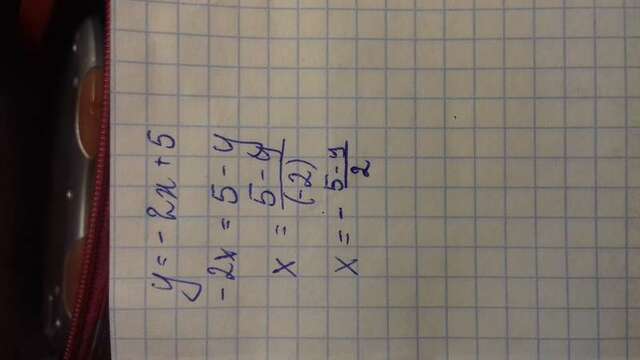 y = -2x + 5
-2x = 5 - y
x = \frac{5-y}{(-2)}
x = -\frac{5-y}{2}